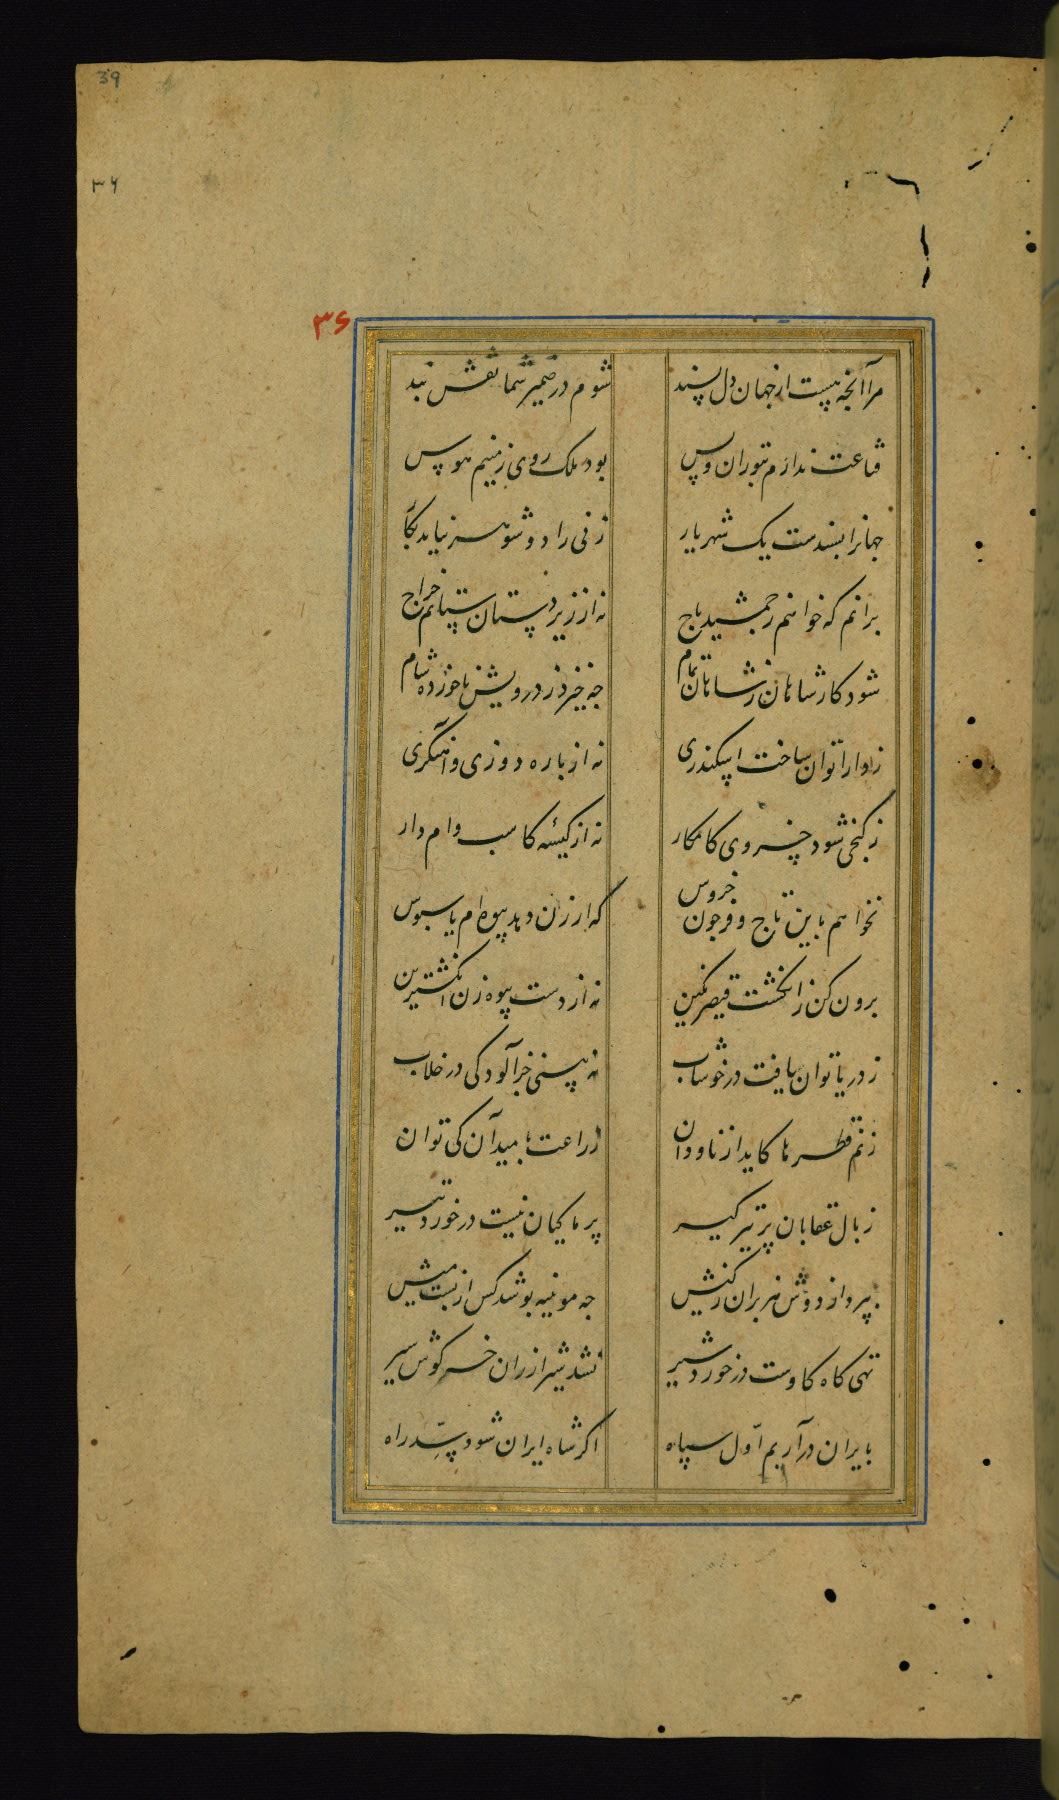 39
۳۶
۳۶
مرا آنچه هست از جهان دل پسند شوم در ضمیر شما نقش بند
قناعت ندارم بتوران و بس بود ملک روی زمینم هوس
جهانرا بسندست یک شهریار زنی را دو شوهر نیاید بکار
برانم که خواهم ز جمشید باج نه از زیر دستان ستانم خراج
شود کار شاهان ز شاهان تمام چه خیزد ز درویش ناخورده شام
ز دارا توان ساخت اسکندری نه از پاره دوزی و آهنگری
ز گنجی شود خسروی کامکار نه از کیسه کاسب وام دار
نخواهم باین تاج و فر چون خروس که ارزن دهد بیوه ام یا سبوس
برون کن ز انگشت قیصر نگین نه از دست بیوه زن انگشترین
ز دریا توان یافت در خوشاب نه بینی خرآلودگی در خلاب
ز نم قطرها کاید از ناودان زراعت بامید آن کی توان
ز بال عقابان پر تیر گیر پر ماکیان نیست در خورد تیر
بپرداز دوش هزبران ز کیش چه موئینه پوشد کس از پشت میش
تهی گاه گاوست در خورد شیر نشد شیر از ران خرگوش سیر
بایران درآریم اول سپاه اگر شاه ایران شود سد راه